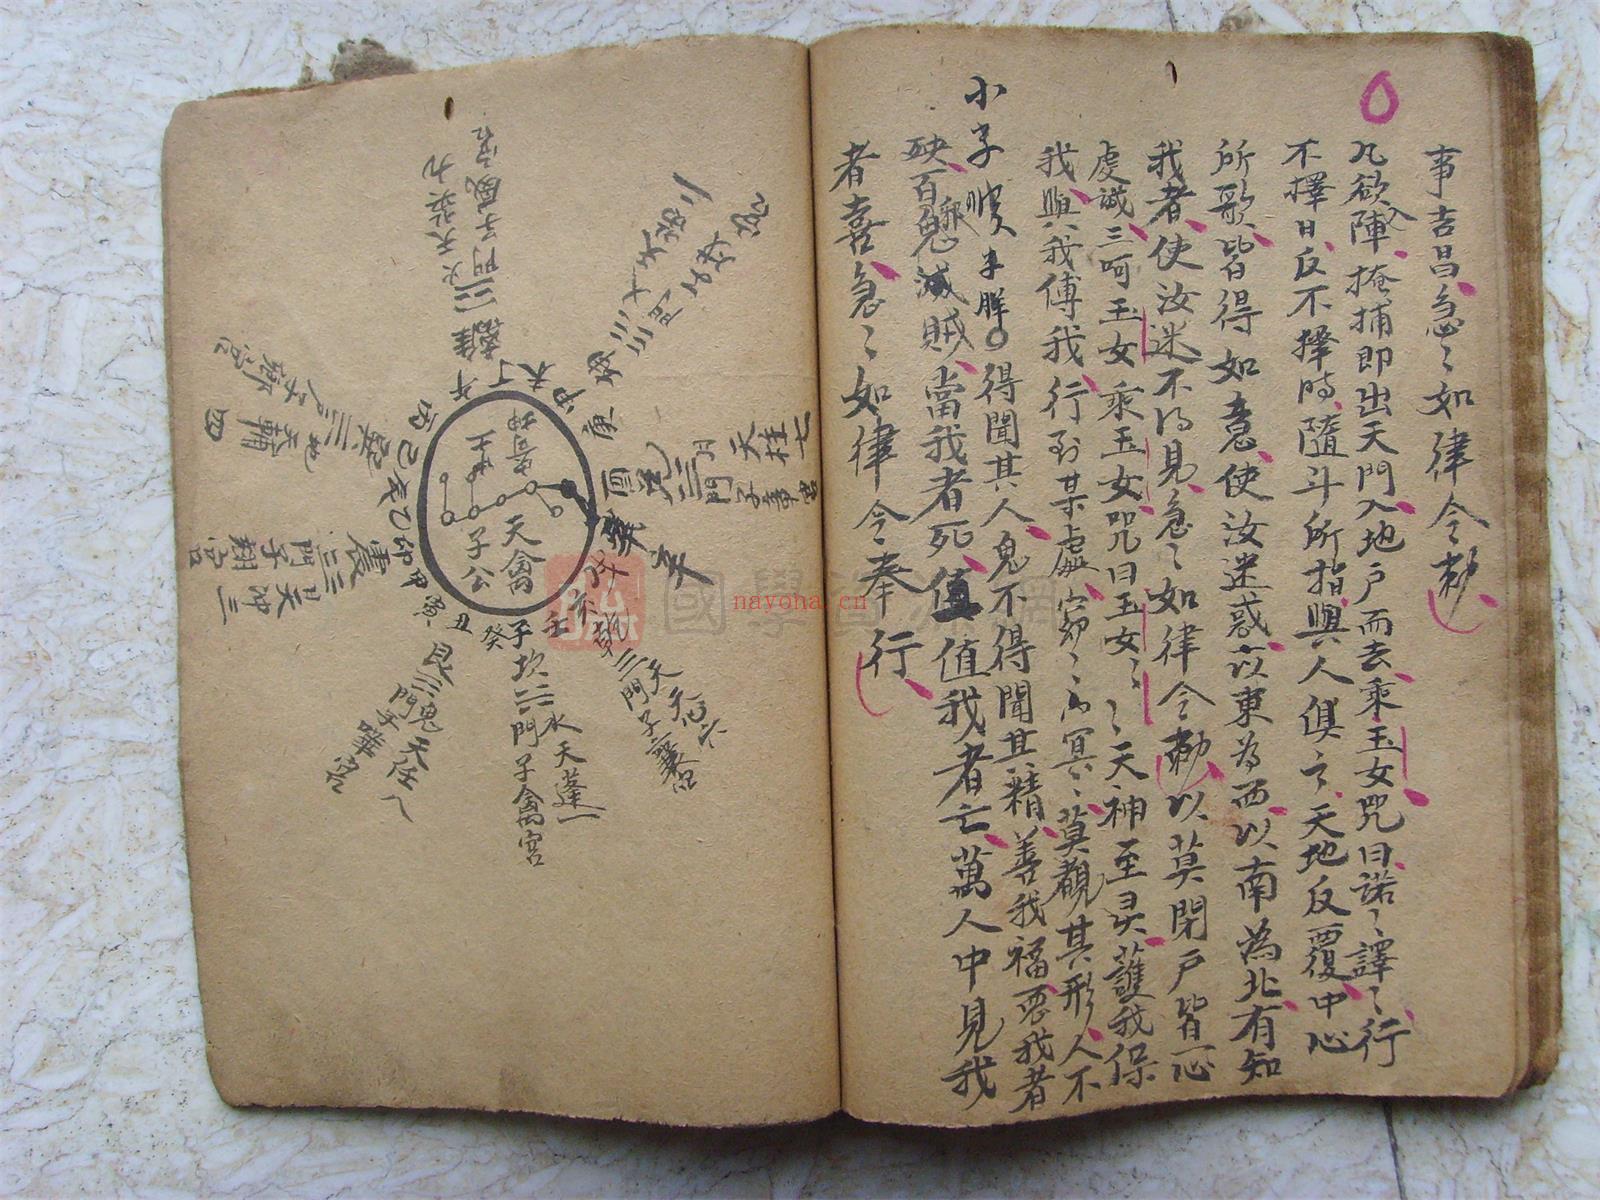 事吉昌急〻如律令勅
凡欲入陣掩捕即出天門入地户而去乘玉女咒曰諾〻譯〻行
不擇日反不擇時隨斗所指與人俱亡天地反覆中心
所歌皆得如意使汝迷惑以東為西以南為北有知
我者使汝迷不得見急〻如律令勅以莫閉户皆一心
虔誠三呵玉女乘玉女咒曰玉女〻〻天神至灵護我保
我與我傅我行到某處窈〻冥〻莫覩其形人不
得聞其人鬼不得聞其精善我福惡我者
小字
殃百邪鬼滅賊當我者死值我者亡萬人中見我
者喜急〻如律令奉行
天禽
子公
午 丁 未 申 庚
酉 辛 亥 壬 子 癸 丑 寅 甲 卯 乙 巳 丙
離 火 天英九
門子威宮
天柱七
門子
天心六
門子襄宮
坎 水 天蓬一
門子禽宮
鬼 天任八
門子嘩宮
震 天冲三
門子翔宮
巽 地 天輔四
nayona.cn
國學資源網